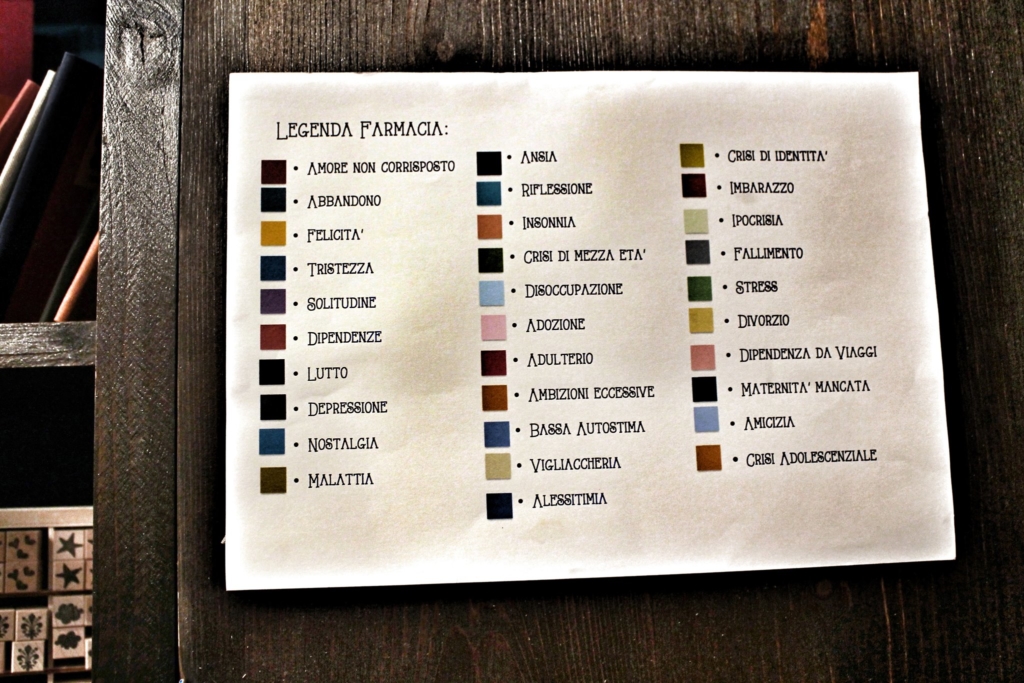 Legenda Farmacia:
• Amore non corrisposto
• Abbandono
• Felicita'
• Tristezza
• Solitudine
• Dipendenze
• Lutto
• Depressione
• Nostalgia
• Malattia
• Ansia
• Riflessione
• Insonnia
• Crisi di mezza eta'
• Disoccupazione
• Adozione
• Adulterio
• Ambizioni eccessive
• Bassa Autostima
• Vigliaccheria
• Alessitimia
• Crisi di identita'
• Imbarazzo
• Ipocrisia
• Fallimento
• Stress
• Divorzio
• Dipendenza da Viaggi
• Maternita' mancata
• Amicizia
• Crisi Adolescenziale